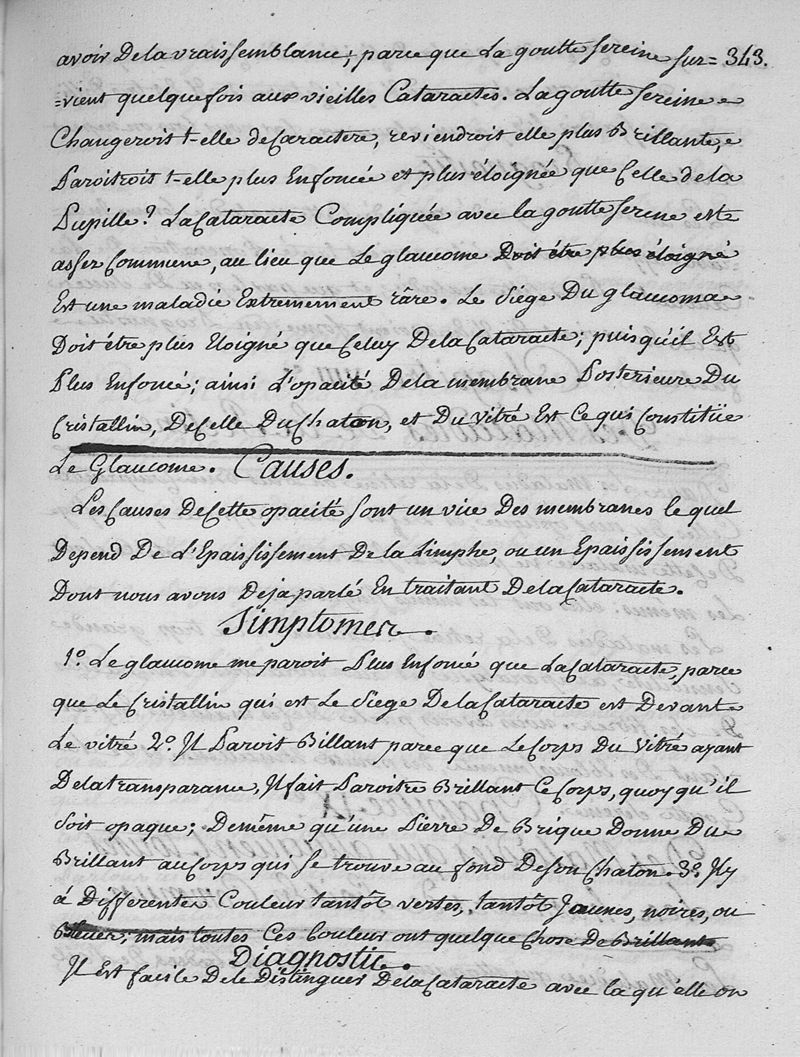 avoir De la vraissemblance, parce que La goutte sereine sur= 343.
=vient quelquefois aux vieilles Cataractes. La goutte sereine
Changeroit t-elle de Caractere, reviendroit elle plus Brillante,
Paroitroit t-elle plus Enfoncée et plus éloignée que Celle de la
Pupille? La Cataracte Compliquée avec la goutte serene est
asser Commune, au lieu que Le glaucome Doit être plus éloigné
Est une maladie Extremement râre. Le Siége Du glaucoma
Doit être plus Eloigné que Celuy De la Cataracte; puisqu'il Est
Plus Enfoncé; ainsi L'opacité De la membrane Posterieure Du
Cristallin, De Celle Du Chaton, et Du Vitré Est Ce qui Constitüe
Le Glaucome. Causes.
Les Causes De Cette opacité sont un vice Des membranes le quel
Depend De L'Epaississement De la Limphe, ou un Epaississement
Dont nous avons Deja parlé En traitant De la Cataracte.
Simptomes.
1º. Le glaucome me paroit Plus Enfoncé que La Cataracte, parce
que Le Cristallin qui est Le Siege De la Cataracte est Devant
Le vitré 2º. Il Paroit Billant parce que Le Corps Du Vitré ayant
De la transparance, Il fait Paroitre Brillant Ce Corps, quoy qu'il
soit opaque; De même qu'une Pierre De Brique Donne Du
Brillant au Corps qui se trouve au fond De son Chaton. 3º. Il y
á Differentes Couleur tantôt vertes, tantôt Jaunes, noires, ou
Bleues, mais toutes Ces Couleur ont quelque Chose De Brillant
Diagnostic.
Il Est facile De le Distinguer De la Cataracte avec la qu'elle on